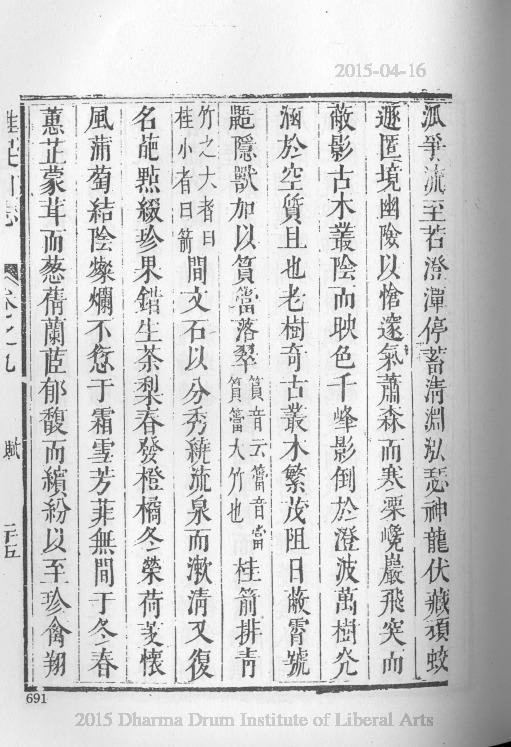 2015-04-16
泒爭流至若澄潭停蓄清淵泓瑟神龍伏藏頑蛟
遯匿境幽險以愴邃氣蕭森而寒栗巉巖飛突而
蔽影古木叢陰而映色千峰影倒於澄波萬樹光
涵於空質且也老樹奇古叢木繁茂阻日蔽霄號
鼯隱獸加以篔簹落翠篔音云簹音當篔簹大竹也桂箭排青
竹之大者曰桂小者曰箭間文石以分秀繞流泉而漱清又復
名葩㸃綴珍果錯生茶梨春發橙橘冬榮荷芰懷
風蒲萄結陰燦爛不愆于霜雪芳菲無間于冬春
蕙芷蒙茸而葱蒨蘭茝郁馥而繽紛以至珍禽翔
志 卷之九 賦 二十五
691
2015 Dharma Drum Institute of Liberal Arts